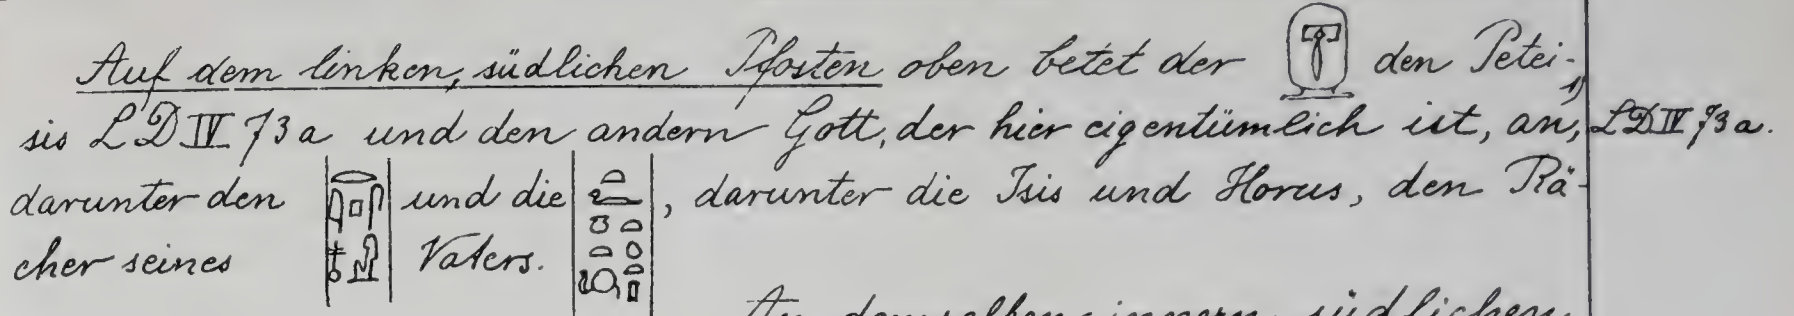 Auf dem linken, südlichen Pfosten oben betet der den Petei-
sis LD IV 73a und den andern Gott, der hier eigentümlich ist, an,¹⁾ LD IV 73a.
darunter den und die , darunter die Isis und Horus, den Rä-
cher seines Vaters.
An demselben innern, südlichen